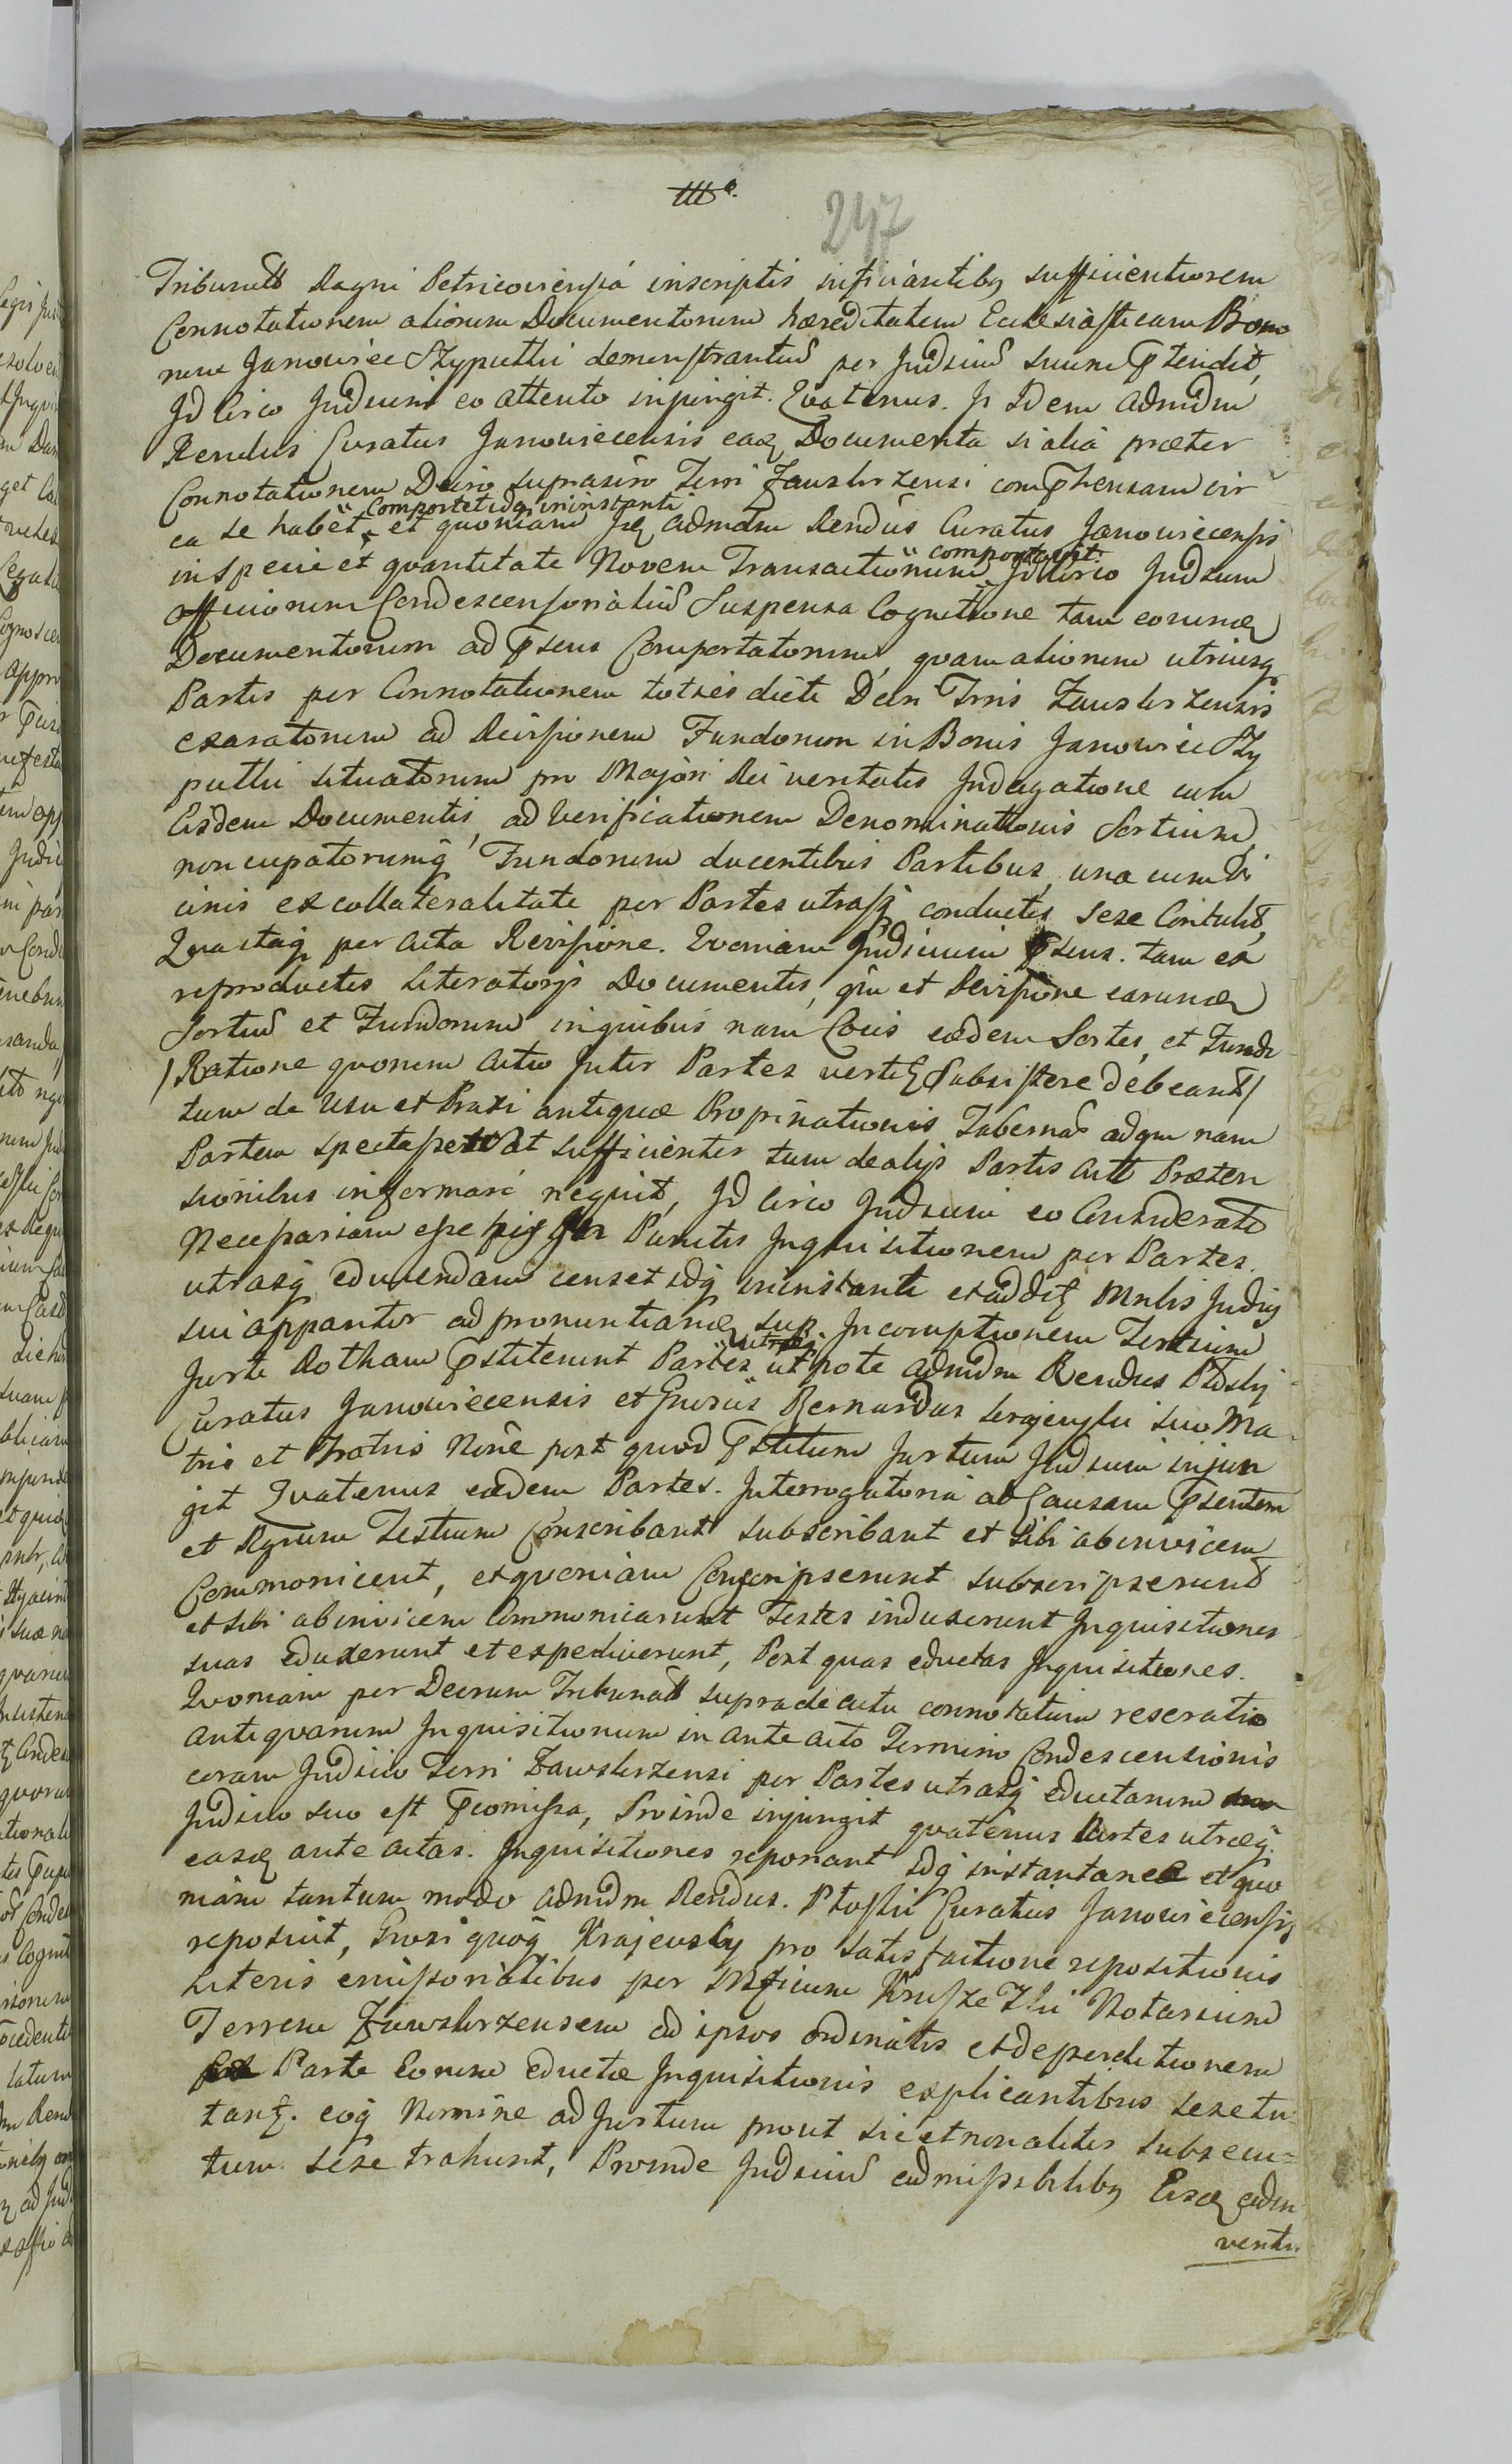 247
Tribunall Regni Petricoviensia inscriptis insinuantibq sufficientiorem
Connotationem aliorum Documentorum hæreditatem Ecclesiasticam Bono
rum Janowiec Szyputki demonstrantiu per Judiciu suum ptendit,
Id Circo Judicium eo attento injungit. Quatenus. Idem admdm
Rendus Curatus Janoviecensis eaq Documenta si alia præter
Connotationem Decro suprasro Terri Zawskrzensi compthensam cir
ca se habet, comportet idq in instanti et quoniam admdm Rendus Curatus Janoviecensis
in specie et quantitate Novem Transactionum comportavit. Id Circo Judicium
officiorum Condescensorialiu Suspensa Cognitione tam eorumq
Documentorum ad psens Comportatorum, quam aliorum utriusq
Partis per Connotationem toties dicti Decri Trris Zawskrzensis
exaratorum ad Revisionem Fundorum in Bonis Janowiec Szy
putki situatorum pro Majori Rei veritatis Indagatione cum
Eisdem Documentis, ad Verificationem Denominationis Sortium,
noncupatorumq Fundorum ducentibus Partibus, una cum Vi
cinis ex collateralitate per Partes utrasq conductis sese Contulit,
Quastaq per acta Revisione. Quoniam Judicium psens. tam ex
reproductis literatorijs Documentis, qm et Revisione earumq
Sortiu et Fundorum in quibus nam Locis eædem Sortes, et Fundi
/Ratione quorum Actio Inter Partes vertiq Subsistere debeant/
tum de Usu et Praxi antiquæ Propinationis Tabernæ ad qm nam
Partem spectasset at sufficienter tum de alijs Partis Act Præten
sionibus informari nequit, Id Circo Judicium eo Considerato
Necessariam esse his Punctis Inquisitionem per Partes.
utrasq educendam censet idq in instanti et addit Mnlis Judiq
sui appariter ad pronuntianq sup Incomptionem Testium
Jurte Rotham pstiterunt Partes utræq ut pote admdm Rendus Ptoski
Curatus Janoviecensis et Grosus Bernardus Krajewski suo Ma
tris et Fratris Noie post quod pstitum Jurtum Judicium injun
git Quatenus eædem Partes. Interrogatoria ad Causam psentem
et Rgnum Testium Conscribant subscribant et sibi abinvicem
Communicent, et quoniam Conscripserunt subscripserunt
et sibi abinvicem Communicarunt Testes induxerunt Inquisitiones
suas eduxerunt et expediverunt, Post quas eductas Inquisitiones.
Quoniam per Decrum Tribunall supra de actu connotatum reseratio
antiquarum Inquisitionum in ante acto Termino Condescensionis
coram Judicio Terri Zawskrzensi per Partes utrasq eductarum
Judicio suo est pcomissa, Proinde injungit quatenus Partes utræq.
easq ante actas. Inquisitiones reponant idq instantanee et quo
niam tantum modo admdm Rendus. Ptoski Curatus Janoviecensis
reposuit, Grosi quoq Krajewscy pro satisfactione repositionis
Literis emissorialibus per Mficum Kruszewski Notarium
Terrem Zawskrzensem ad ipsos ordinatis et deperditionem
Parte Eorum eductæ Inquisitionis explicantibus sese tu
tanq. eoq Nomine ad Jurtum prout sic et non aliter subsecu=
tum. sese trahunt, Proinde Judiciu admissibilibq Eisq adin
ventu.